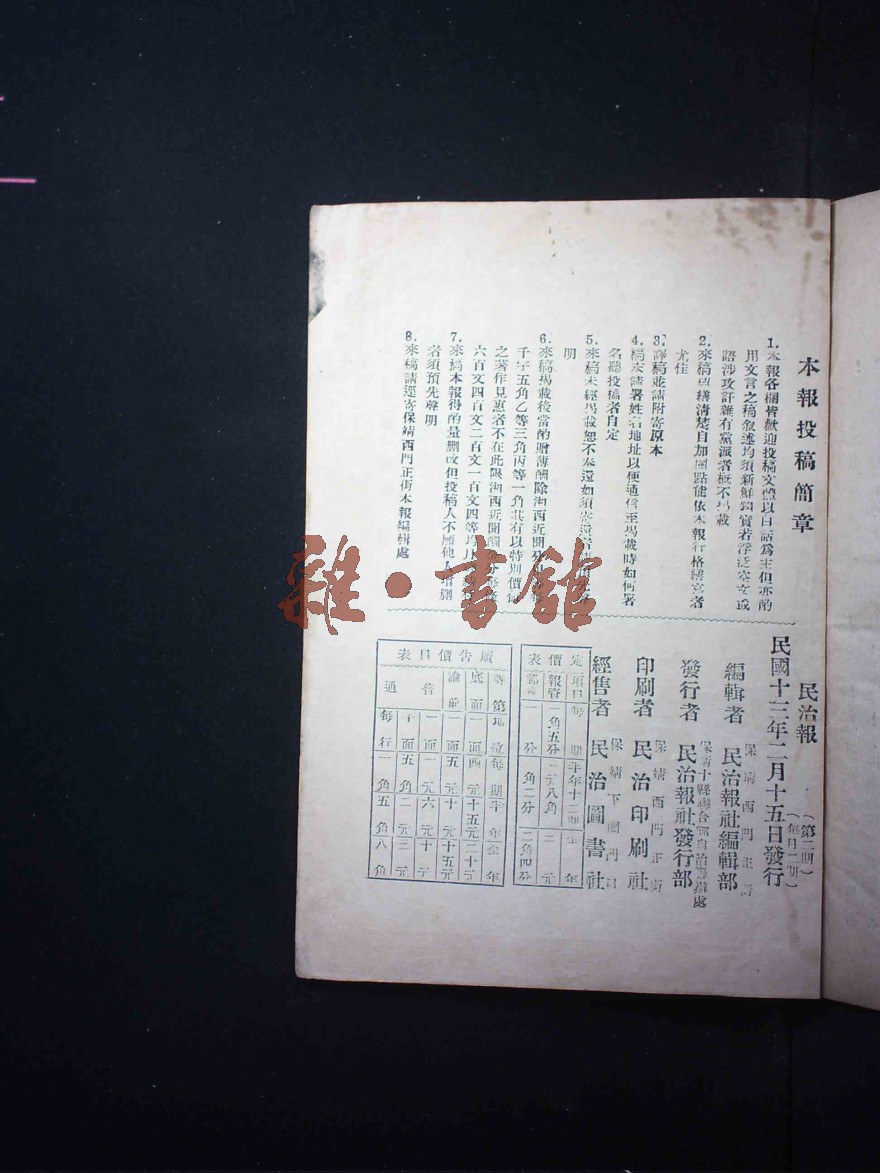 本報投稿簡章
1.本報各欄皆歡迎投稿文體以白話爲主但亦酌
用文言之稿叙述均須新鮮翔實若浮泛空文或
語涉攻訐雜有黨派者概不揭載
2.來稿望繕淸楚自加圈點能依本報行格繕寫者
尤佳
3.譯稿並請附寄原本
4.稿末請署姓名地址以便通信至揭載時如何署
名聽投稿者自定
5.來稿未經揭載恕不奉還如須寄還者
明
6.來稿揭載後當酌贈薄酬除湘西近聞
千字五角乙等三角丙等一角其有以特別價値
之著作見惠者不在此限湘西近聞
六百文四百文二百文一百文四等均
7.來稿本報得酌量删改但投稿人不願他人增删
者須預先聲明
8.來稿請逕寄保靖西門正街本報編輯處
民治報
(第二期)
(每月二期)
民國十三年二月十五日發行
編輯者 保靖西門正街 民治報社編輯部
發行者 保靖十縣聯合 自治 處 民治報社發行部
印刷者 保靖西門正街 民治印刷社
經售者 保靖下 門口 民治圖書社
定價表
項目 每期 半年十二册 全年
報資 一角五分 一元八角 三元
郵 一分 一角二分 二角四分
廣告價目表
等第 地位 每期 半年 全年
底面 一面 四元 十五元 二十元
論前 一面 五元 十元 十五元
普通 一面 一元 六元 十元
半面 五角 二元 三元
每行 一角 五角 八角
雜·書館